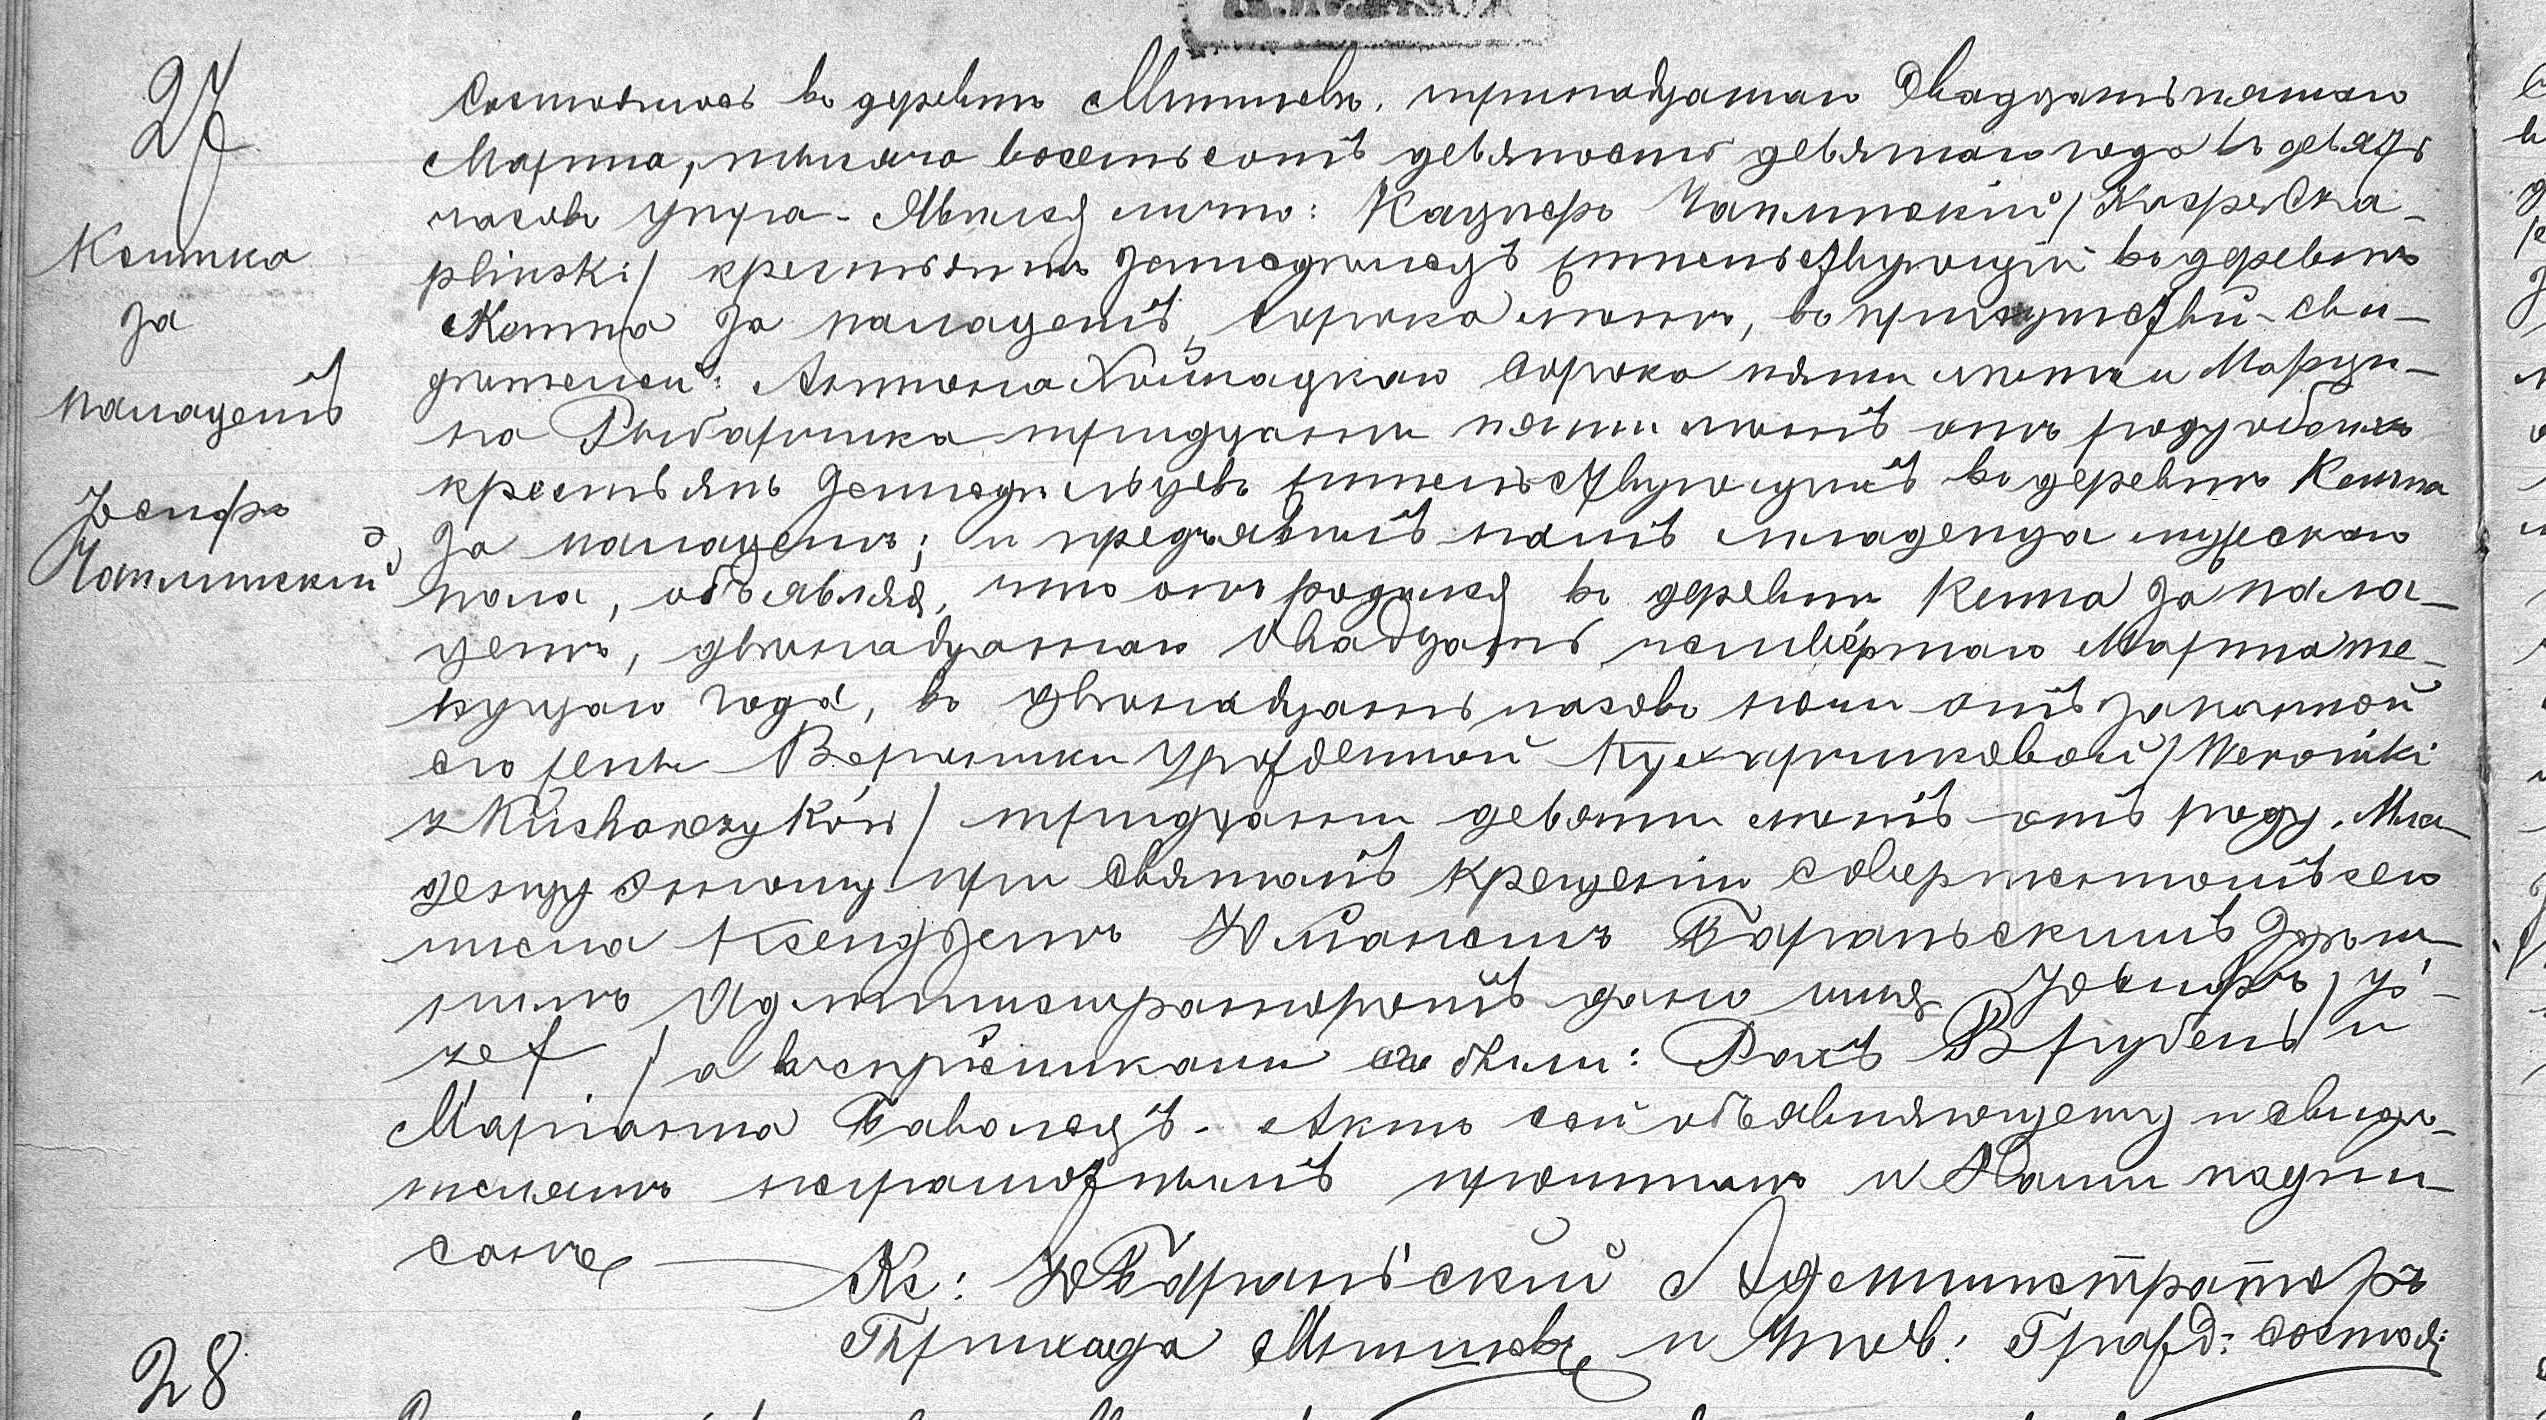 27
Кемпка
за
палацемъ
Іосифъ
Чаплинскій
Состоялось въ деревнѣ Мнишевъ, тринадцатаго Двадцать пятаго
Марта, тысяча восемьсотъ девяносто девятаго года въ девять
часовъ утра. Явился лично: Казперъ Чаплинскій /Kasper Cza-
pliński/ крестьянинъ земледѣлецъ жительствующій въ деревнѣ
Кемпа за палацемъ, сорока лѣтъ, въ присутствіи сви-
дѣтелей: Антона Хойнацкаго сорока пяти лѣтъ и Марци-
на Рыбарчика тридцати пяти лѣтъ отъ роду обоихъ
крестьянъ Земледѣльцевъ жительствующихъ въ деревнѣ Кемпа
за палацемъ; и предъявилъ намъ младенца мужескаго
пола, объявляя, что онъ родился въ деревнѣ Кемпа за пала-
цемъ, двѣнадцатаго Двадцать четвёртаго Марта те-
кущаго года, въ двѣнадцать часовъ ночи отъ законной
его жены Вероники урожденной Кухарчиковой /Weroniki
z Kucharczyków/ тридцати девяти лѣтъ отъ роду. Мла-
денцу этому при Святомъ Крещеніи совершенномъ сего
числа Ксендземъ Юліаномъ Бараньскимъ здѣш-
нимъ Администраторомъ дано имя Іосифъ /Jó-
zef/ а воспріемниками его были: Рохъ Врубель и
Маріанна Баволецъ. Актъ сей объявляющему и свидѣ-
телямъ неграмотнымъ прочитанъ и Нами подпи-
санъ.
Кс: Ю Бараньскій Администраторъ
Прихода Мнишевъ и Чинов: Гражд: состоя:
28